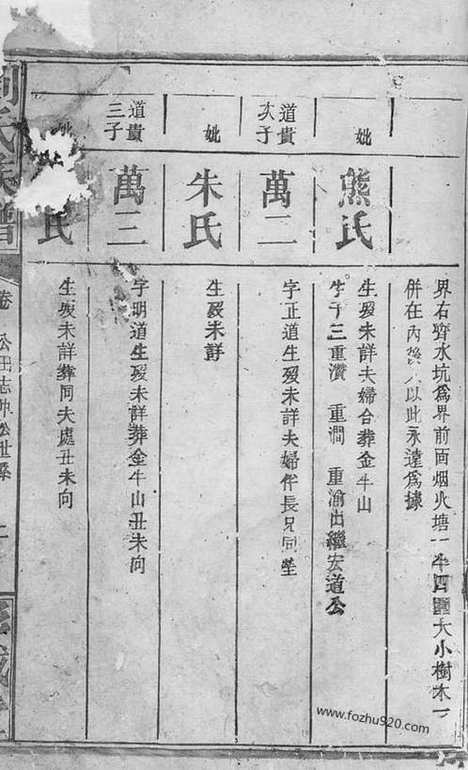 界右齊水坑爲界前面烟火塘一半四圍大小樹木一
併在內後人以此永遠爲據
妣
熊氏
生歿未詳夫婦合葬金牛山
生子三重瀆 重澗 重渝出繼宏道公
道貴次子
萬二
字正道生歿未詳夫婦伴長兄同塋
妣
朱氏
生歿未詳
道貴三子
萬三
字明道生歿未詳葬金牛山丑未向
妣
氏
生歿未詳葬同夫處丑未向
劉氏族譜
卷
www.fozhu920.com